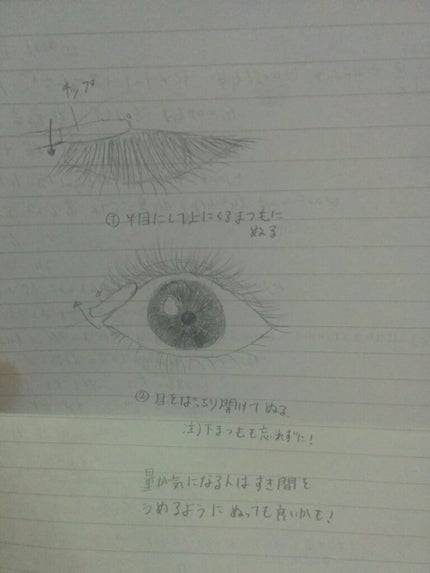 チップ
①半目にして上にくるまつもに
ぬる
②目をぱっちり開けてぬる
注)下まつもも忘れずに!
量が気になる人はすき間を
うめるようにぬっても良いかも!